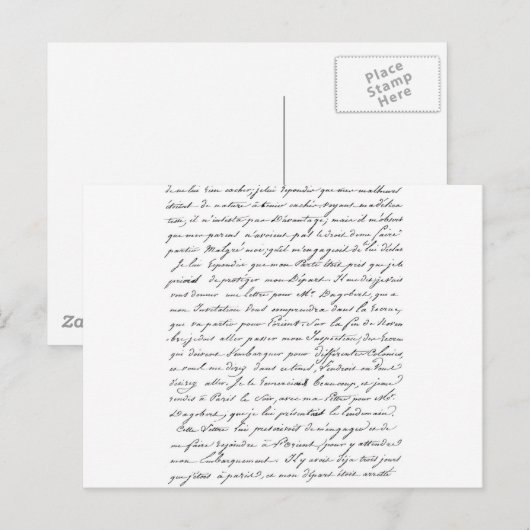 Place
Stamp
Here
Za
de ne lui rien cacher; je lui repondis que mes malheurs
étoient de nature à tenir cachés, voyant ma délica
tesse, il n'insista pas d'avantage; mais il m'observe
que mes parens n'avoient pas le droit de me faire
partir Malgré moi, qu'il m'engageoit de lui
Je lui repondis que mon Parti étoit pris que je le
priois de protéger mon Départ. Il me dit je vais
vous donner une lettre pour Mr. Dagobert, qui a
mon Invitation Vous comprendra dans la
que va partir pour l'orient. Sur la fin de Novem
bre, je dois aller passer mon Inspection, des
que doivent S'embarquer pour différentes Colonies,
en tems, Vendroit ou Vous
désirez aller. Je le Remerciais Beaucoup, et je me
rendis à Paris le Soir, avec ma Lettre pour Mr.
Dagobert, que je lui présentais le lendemain.
Cette Lettre lui de m'engager et de
me faire rejoindre à l'Orient, pour y attendre
mon Embarquement. Il y avoit déja trois jours
que j'étois à paris, et mon départ étoit arrêté